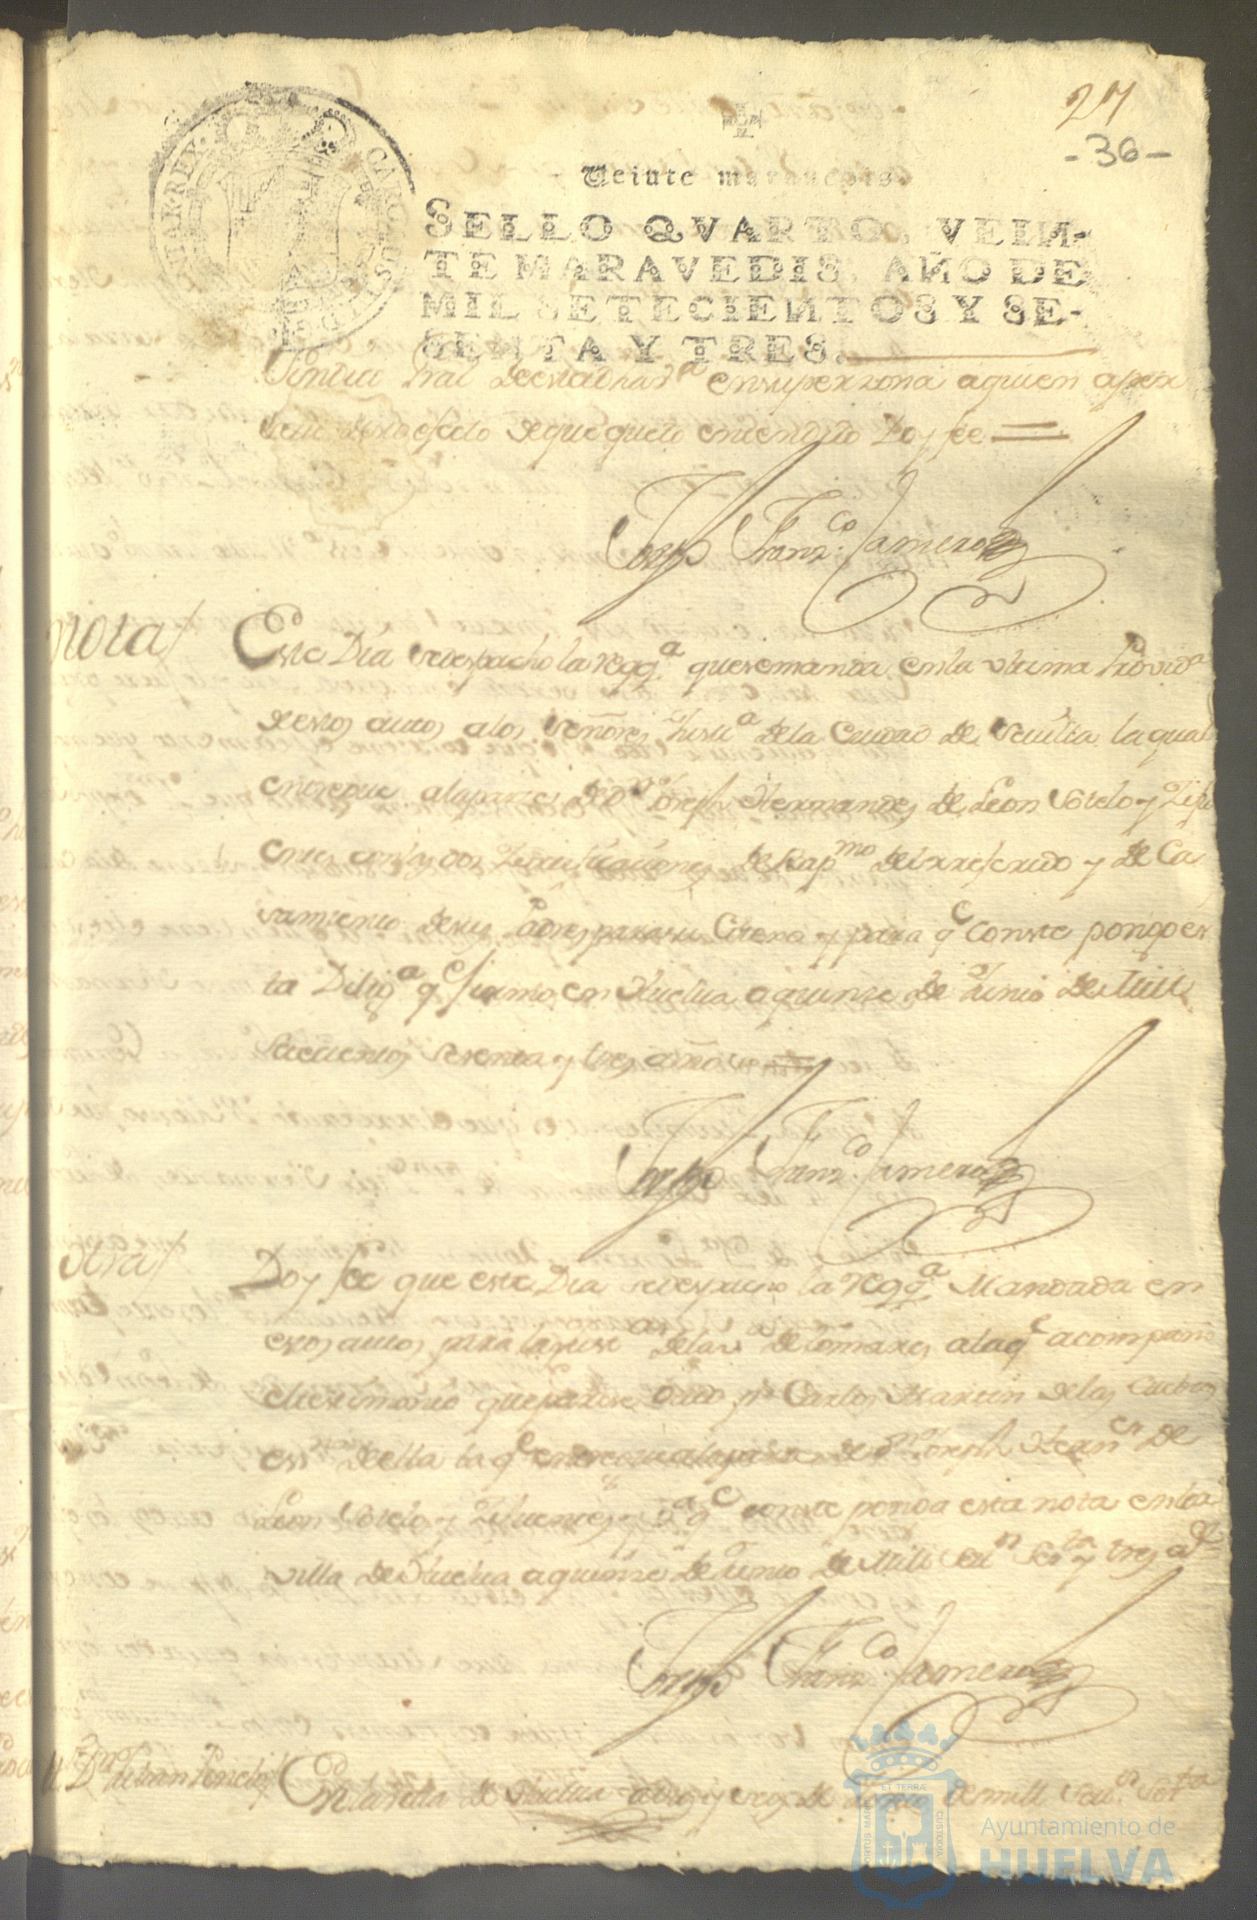 27
-36-
Veinte maravedis.
SELLO QVARTO, VEIN-
TE MARAVEDIS, AÑO DE
MIL SETECIENTOS Y SE-
SENTA Y TRES.
en su perzona a quien
efecto de que quedo entendido Doy fee
Joseph Franz.co Camero
Nota
Este Dia se despacho la reqq.a que se manda en la vltima Provid.a
de estos autos a los Señores Just.a de la Ciudad de Sevilla la qual
entregue a la parte de Dn Joseph Hernandes de Leon Sotelo y Zifu
entes con las dos Zertificaciones de Bap.mo del referido y de Ca
samiento de sus Padres para su Cotexo y para q.e Conste pongo es
ta Dilig.a q.e firmo en Huelva a quinse de Junio de Mill
Setecientos sesenta y tres años
Joseph Franz.co Camero
Otra
Doy fee que este Dia se despacho la reqq.a Mandada en
estos autos para la Just.a de la v.a de tomares a la q.e acompaño
el testimonio que parese dado p.r Carlos Martin de las Cuebas
ess.no de ella la q.e entregue a la parte de Dn Joseph Hern.es de
Leon Sotelo y Zifuentes y p.a q.e conste pongo esta nota en la
villa de Huelva a quinse de Junio de Mill Set.s Ses.ta y tres a.s
Joseph Franz.co Camero
En la villa de Huelva a dies y seis de Junio de mill Set.s Ses.ta
Ayuntamiento de
HUELVA